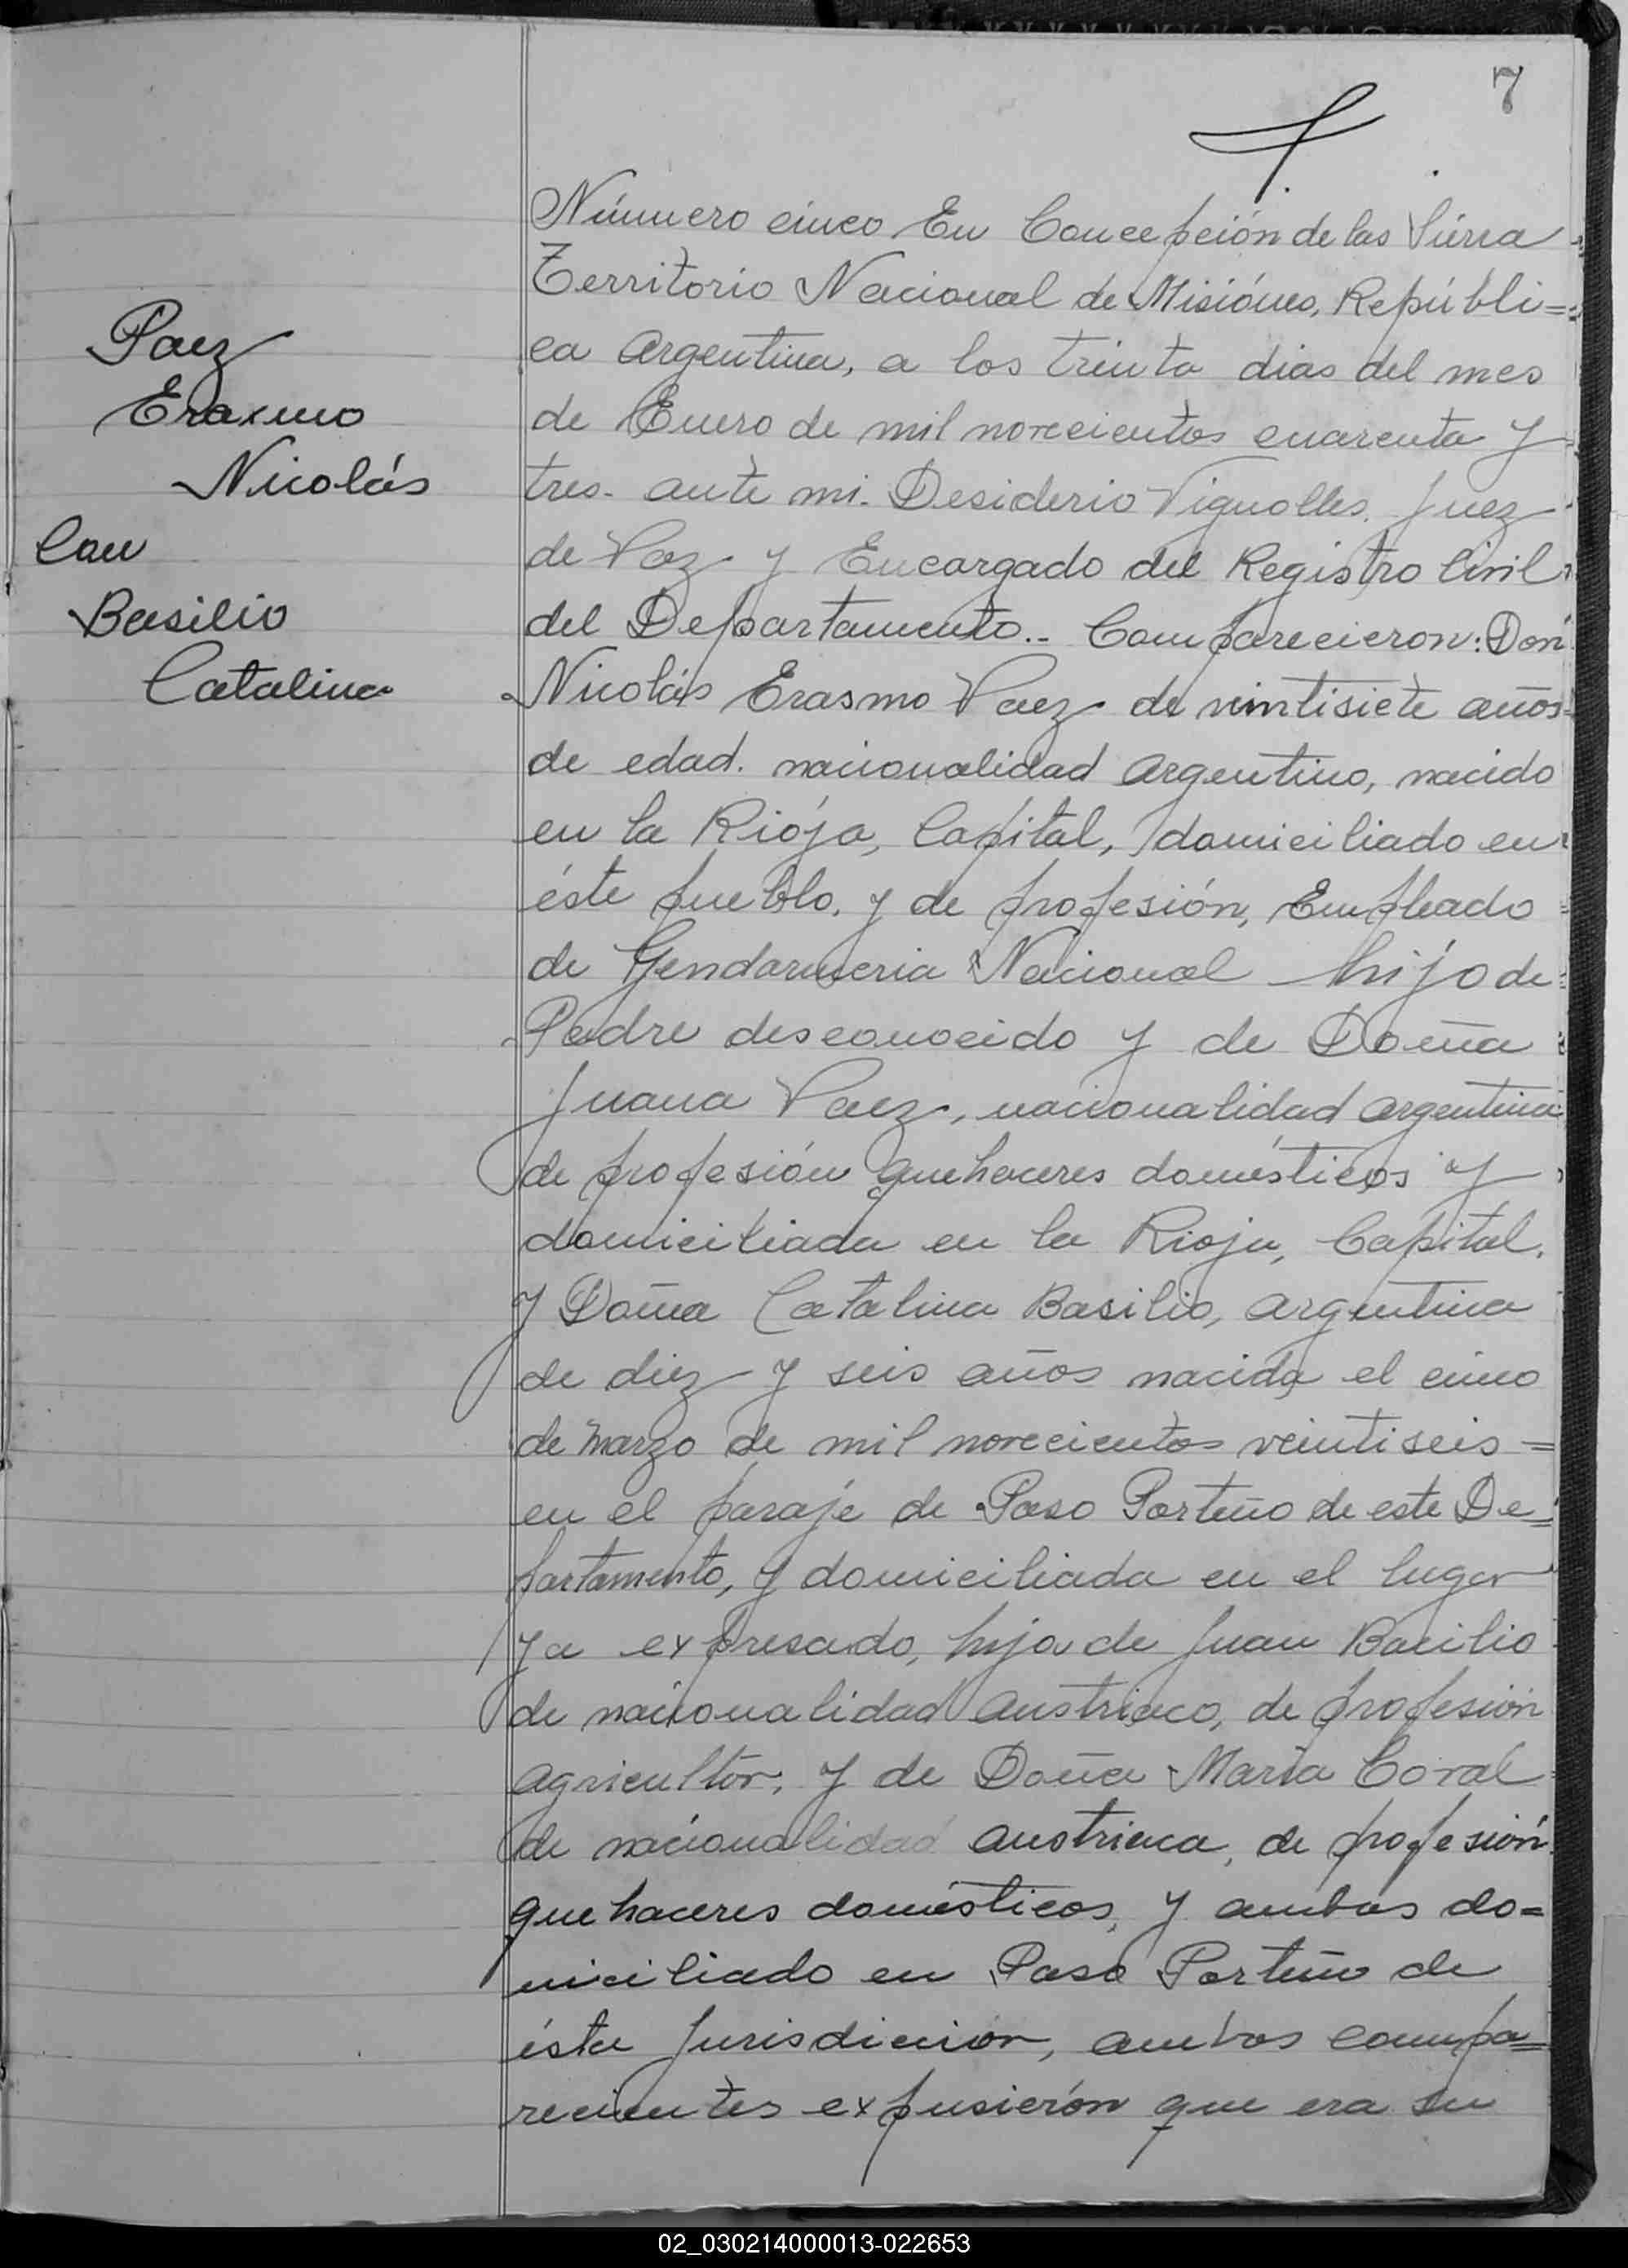 7
Paez
Erasmo
Nicolás
Con
Basilio
Catalina
Número cinco En Concepción de las Siérra
Territorio Nacional de Misiónes, Repúbli=
ca Argentina, a los treinta dias del mes
de Enero de mil novecientos cuarenta y
tres. ante mi. Desiderio Vignolles. Juez
de Paz y Encargado del Registro Civil
del Departamento.- Comparecieron: Don
Nicolás Erasmo Paez de veintisiete años
de edad. nacionalidad Argentino, nacido
en la Rioja, Capital, domiciliado en
éste pueblo, y de profesión, Empleado
de Gendarmeria Nacional hijo de
Padre desconocido y de Doña
Juana Paez, nacionalidad Argentina
de profesión quehaceres domésticos y
domiciliada en la Rioja, Capital.
y Doña Catalina Basilio, argentina
de diez y seis años nacida el cinco
de Marzo de mil novecientos veintiseis =
en el paraje de Paso Porteño de este De=
partamento, y domiciliada en el lugar
ya expresado, hija de Juan Bacilio
de nacionalidad Austriaco, de profesión
agricultor, y de Doña Maria Coval
de nacionalidad austriaca, de profesión
que haceres domésticos, y ambos do=
miciliado en Paso Porteño de
ésta Jurisdicción, ambos compa=
recientes expusierón que era su
02_030214000013-022653